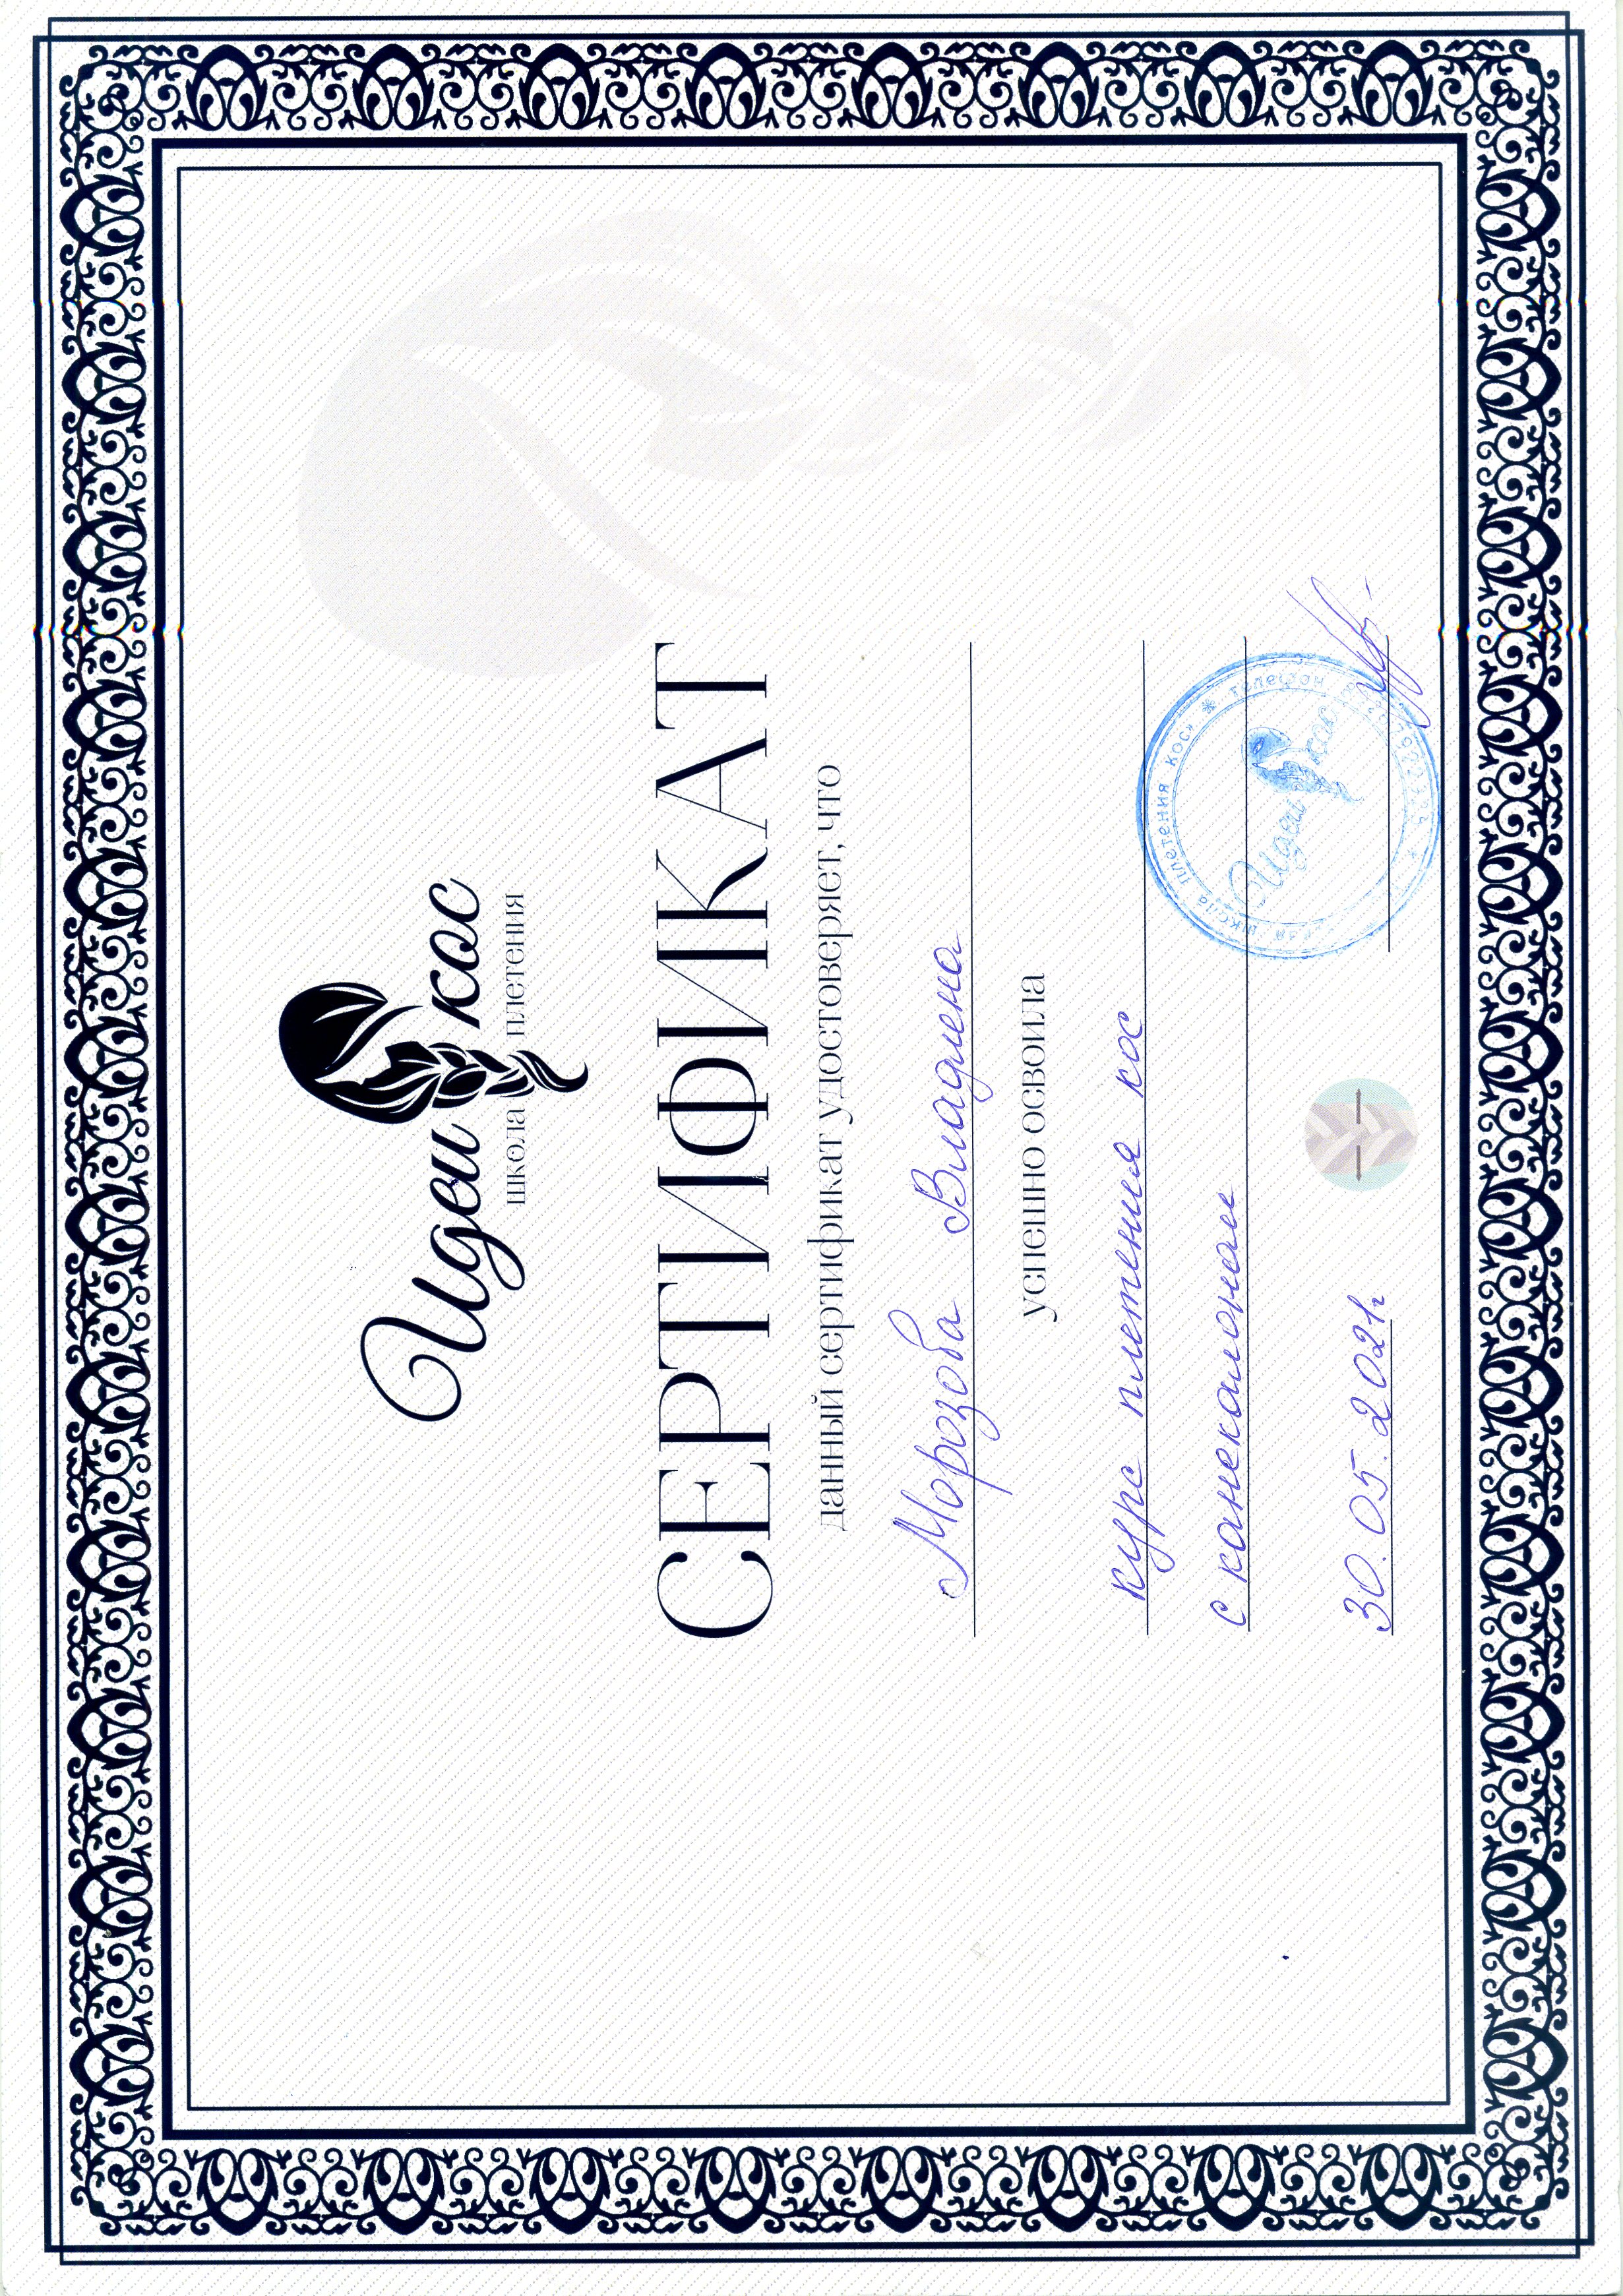 Идеи кос
школа плетения
СЕРТИФИКАТ
данный сертификат удостоверяет, что
Морозова Владлена
успешно освоила
курс плетения кос
с канекалоном
30.05.2021г
школа плетения кос» * телефон
Идеи кос